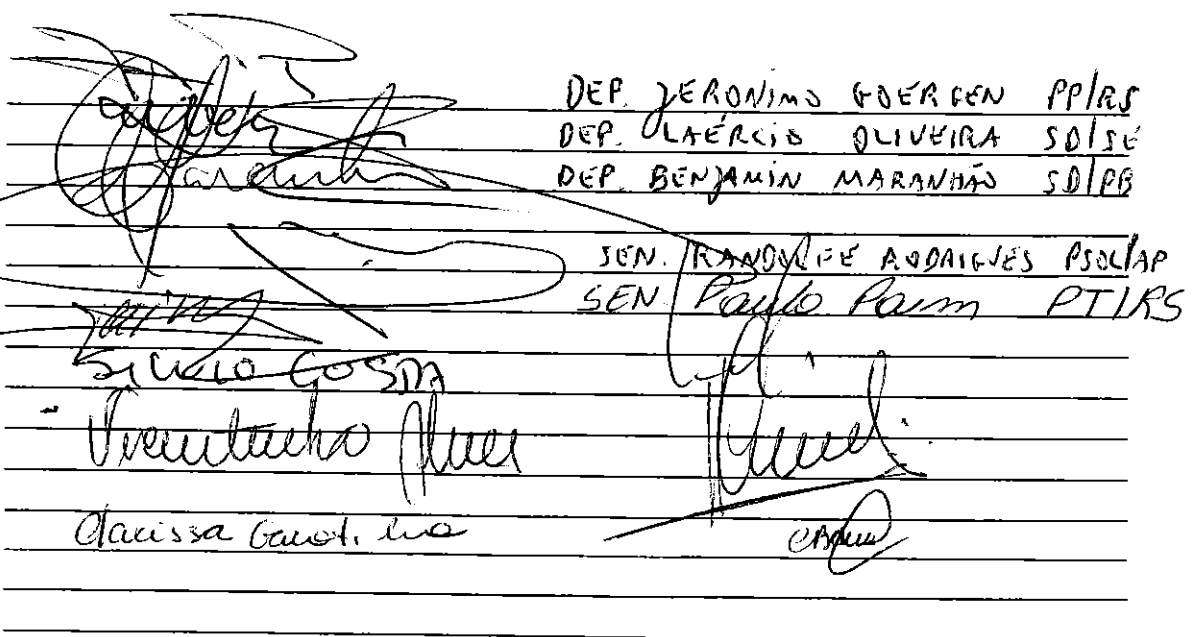 DEP. JERONIMO GOERGEN PP/RS
DEP. LAÉRCIO OLIVEIRA SD/SE
DEP. BENJAMIN MARANHÃO SD/PB
Maranhão
SEN. RANDOLFE RODRIGUES PSOL/AP
SEN Paulo Paim PT/RS
SILVIO COSTA
Vicentinho Alves
Clarissa Garotinho